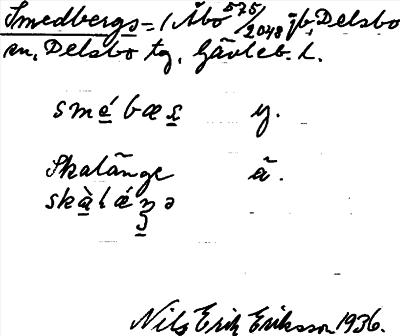 Smedbergs=( Åbo 575/2048 jb, Delsbo
sn, Delsbo tg, Gävleb. l.
smébæs y.
Skalänge ä.
skàlǽŋə
Nils Erik Eriksson 1936.